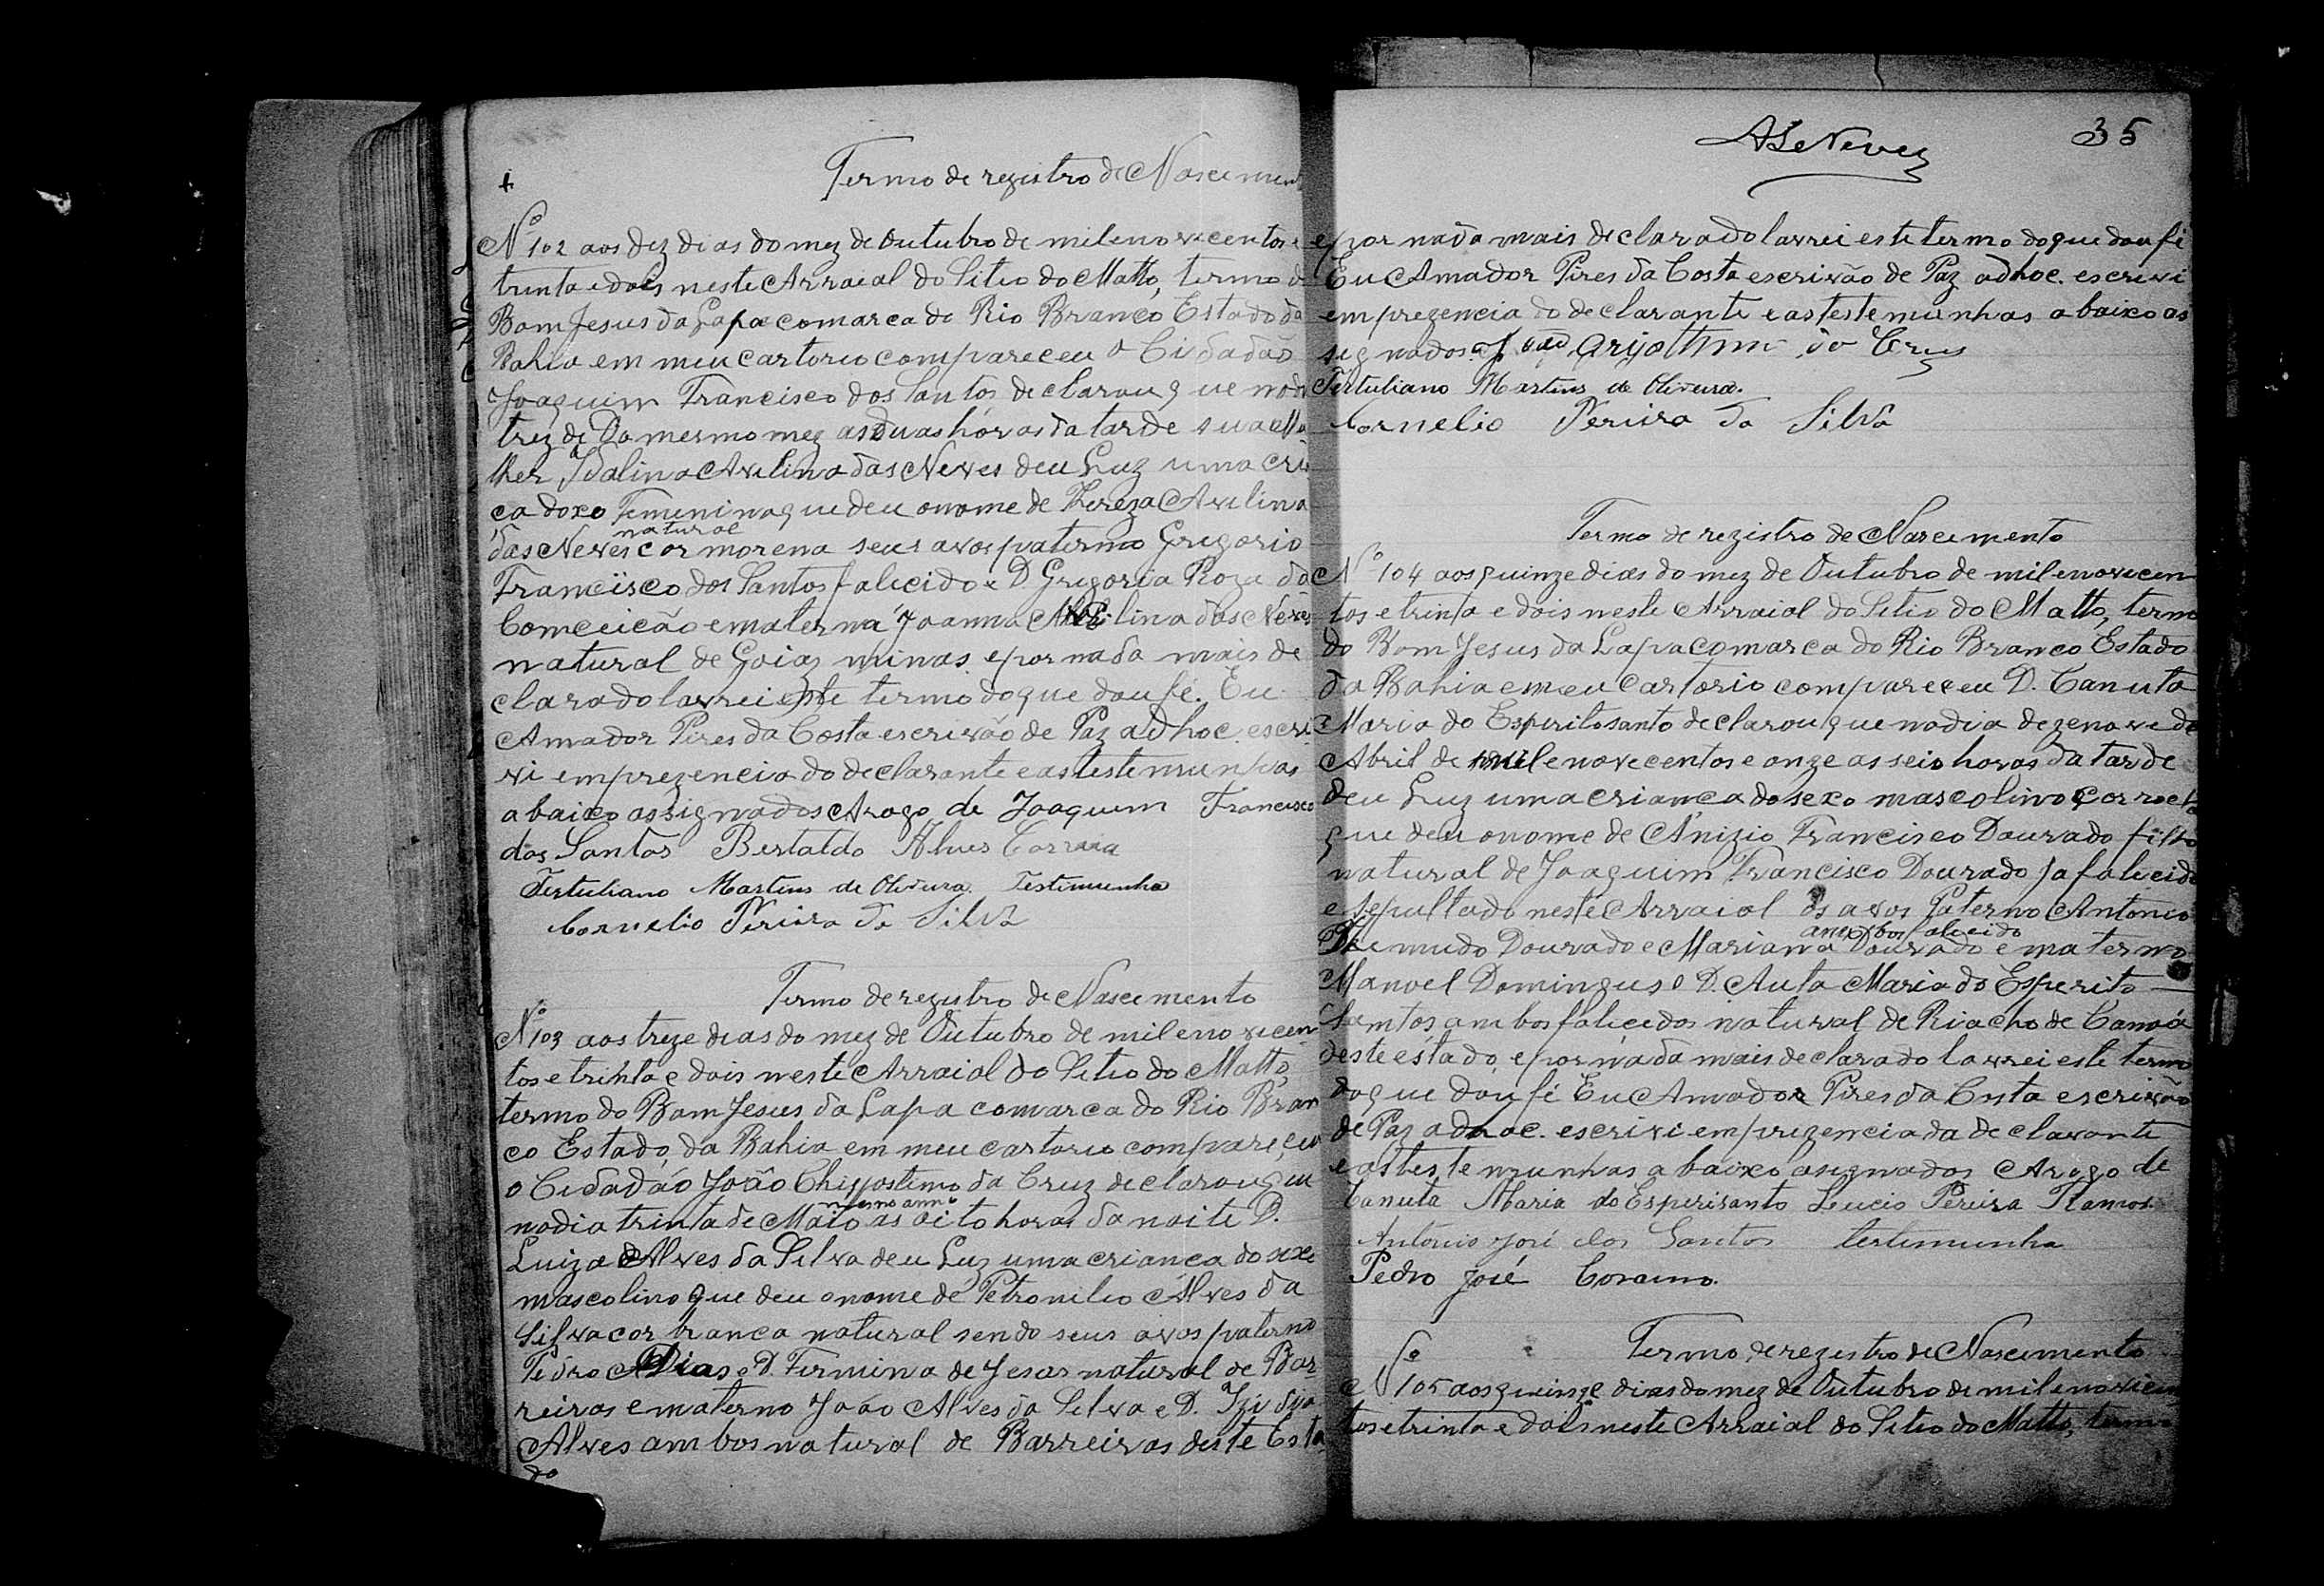 Termo de registro de Nascimento
Nº 102 aos dez dias do mez de Outubro de mil e novecentos e
trinta e dois neste Arraial do Sitio do Matto, termo do
Bom Jesus da Lapa comarca do Rio Branco Estado da
Bahia em meu cartorio compareceu o Cidadão
Joaquim Francisco dos Santos declarou que no dia
trez de Do mesmo mez as duas hóras da tarde sua Mu
lher, Idalina Avelina das Neves deu Luz uma crian
ca doxo Femenina que deu o nome de Thereza Avelina
natural
das Neves cor morena seus avos paterno Gregorio
Francisco dos Santos falicido e D. Gregoria Roza da
Comceicão e materna Joanna Avelina das Neves
natural de Goiaz minas e por nada mais de
clarado lavrei este termo do que dou fé. Eu
Amador Pires da Costa escrivão de Paz adhoc. escri
vi em prezencia do declarante e as testemunhas
abaixo assignados Arogo de Joaquim Francisco
dos Santos Bertaldo Alves Correia
Tertuliano Martins de Olivura. Testimunha
Cornelio Pereira da Silva
Termo de registro de Nascimento
Nº 103 aos treze dias do mez de Outubro de mil e novecen
tos e trinta e dois neste Arraial do Sitio do Matto,
termo do Bom Jesus da Lapa comarca do Rio Bran
co Estado da Bahia em meu cartorio compareceu
o Cidadão João da Cruz declarou que
mesmo anno
no dia trinta de Maio as oito horas da noite D.
Luiza Alves da Silva deu Luz uma crianca do sexe
mascolino que deu o nome de Petronilio Alves da
Silva cor branca natural sendo seus avos paterno
Pedro Dias e D. Fermina de Jesus natural de Bar
reiras e materno João Alves da Silva e D.
Alves ambos natural de Barreiras deste Esta
do
ASeNeves
35
e por nada mais declarado lavrei este termo do que dou fé
Eu Amador Pires da Costa escrivão de Paz adhoc. escrivi
em prezencia do declarante e as testemunhas abaixo as
signados. João da Cruz
Tertuliano Martins de Olivura.
Cornelio Pereira da Silva
Termo de registro de Nascimento
Nº 104 aos quinze dias do mez de Outubro de mil e novecen
tos e trinta e dois neste Arraial do Sitio do Matto, termo
do Bom Jesus da Lapa comarca do Rio Branco Estado
da Bahia em eu cartorio compareceu D. Canuta
Maria do Esperito santo declarou que no dia dezenove de
Abril de mil e novecentos e onze as seis horas da tarde
deu Luz uma crianca do sexo mascolino cor
que deu o nome de Anizio Francisco Dourado filho
natural de Joaquim Francisco Dourado ja falicido
e sepultado neste Arraial os avos Paterno Antonio
ambos falicido
Dourado e Mariana Dourado e materno
Manoel Domingus e D. Auta Maria do Esperito
Santos ambos falicidos natural de Riacho de Canoá
deste estado, e por nada mais declarado lavrei este termo
do que dou fé Eu Amador Pires da Costa escrivão
de Paz adhoc. escrivi em prezencia da declarante
e as testemunhas abaixo asignados Arogo de
Canuta Maria do Esperisanto Leucio Pereira Ramos.
Antonio José dos Santos testimunha
Pedro José
Termo de registro de Nascimento
Nº 105 aos quinze dias do mez de Outubro de mil e novecen
tos e trinta e dois neste Arraial do Sitio do Matto, termo